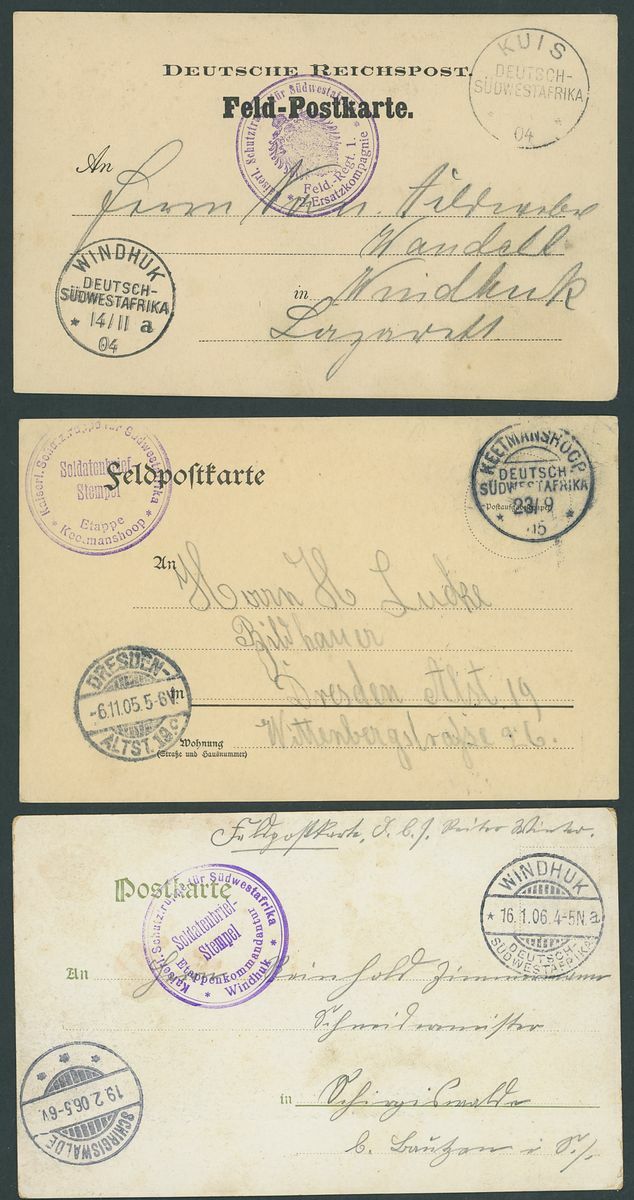 DEUTSCHE REICHSPOST.
Feld-Postkarte.
KUIS
DEUTSCH-
SÜDWESTAFRIKA
04
Kaiserl. Schutztruppe für Südwestafrika
Feld.-Regt. 1.
Ersatzkompagnie
An
Herrn
Wandell
in Windhuk
Lazarett
WINDHUK
DEUTSCH-
SÜDWESTAFRIKA
14/11 a
04
Kaiserl. Schutztruppe für Südwestafrika
Soldatenbrief
Stempel
Etappe
Keetmanshoop
Feldpostkarte
KEETMANSHOOP
DEUTSCH-
SÜDWESTAFRIKA
23/9
05
An
Herrn H Ludke
Bildhauer
in Dresden Altst 19
Wittenbergstraße
Wohnung
(Straße und Hausnummer)
DRESDEN-
-6.11.05.5-6V.
ALTST. 19c
Feldpostkarte, Reiter Winter.
Postkarte
Kaiserl. Schutztruppe für Südwestafrika
Soldatenbrief-
Stempel
Etappenkommandantur
Windhuk
WINDHUK
16.1.06.4-5N. a
DEUTSCH-
SÜDWESTAFRIKA
An Reinhold Zimmermann
Schneidermeister
in Schirgiswalde
b. Bautzen i. S.
SCHIRGISWALDE
19.2.06.5-6V.